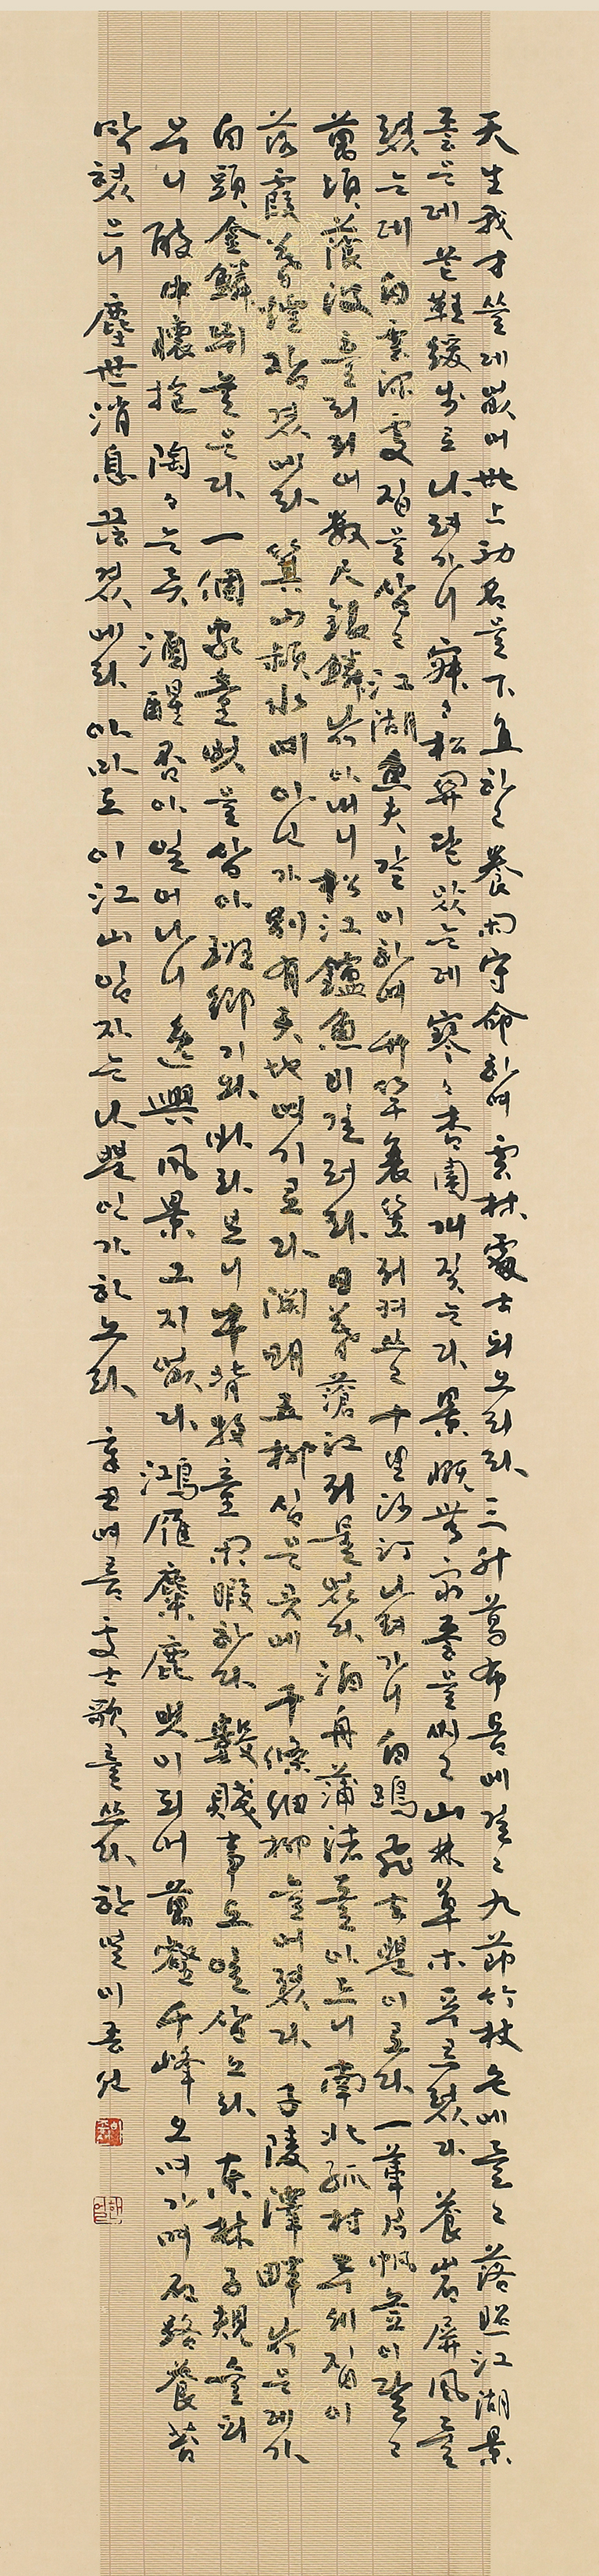 天生我才 쓸데없어 世上功名을 下直하고 養閑守命하여 雲林處士 되오리라 三升葛布 몸에 걸고 九節竹杖 손에 들고 落照江湖景
좋은데 芒鞋緩步로 나려가니 寂寂松關 닫았는데 寥寥杏園 개 짖는다 景槪無窮 좋을시고 山林草木 푸르렀다 蒼岩屛風 둘
렀는데 白雲深處 집을 삼고 江湖漁夫 같이하여 竹竿簑笠 젖혀쓰고 十里沙汀 나려가니 白鷗飛去 뿐이로다 一葦片帆 높이 달고
萬頃蒼波 흘리저어 數尺銀鱗 낚아내니 松江鱸魚 비길러라 日暮蒼江 저물었다 泊舟蒲渚 돌아오니 南北孤村 두세 집이
落霞暮煙 잠겼에라 箕山潁水 예 아닌가 別有天地 여기로다 淵明五柳 심은 곳에 千條細柳 늘어졌다 子陵澤畔 낚은 데가
白頭金鱗 뛰노은다 一個家童 벗을 삼아 班鄕기와 바라보니 牛背牧童 閑暇하다 幾賤事도 일삼으라 東林子規 슬피
우니 醉中懷抱 陶陶는 듯 酒醒否아 일어나니 逸興風景 그지없다 鴻雁麋鹿 벗이 되어 萬壑千峰 오며가며 石路蒼苔
막혔으니 塵世消息 끊겼에라 아마도 이 江山 임자는 나뿐인가 하노라 辛丑여름 處士歌를 쓰다 한얼 이종선